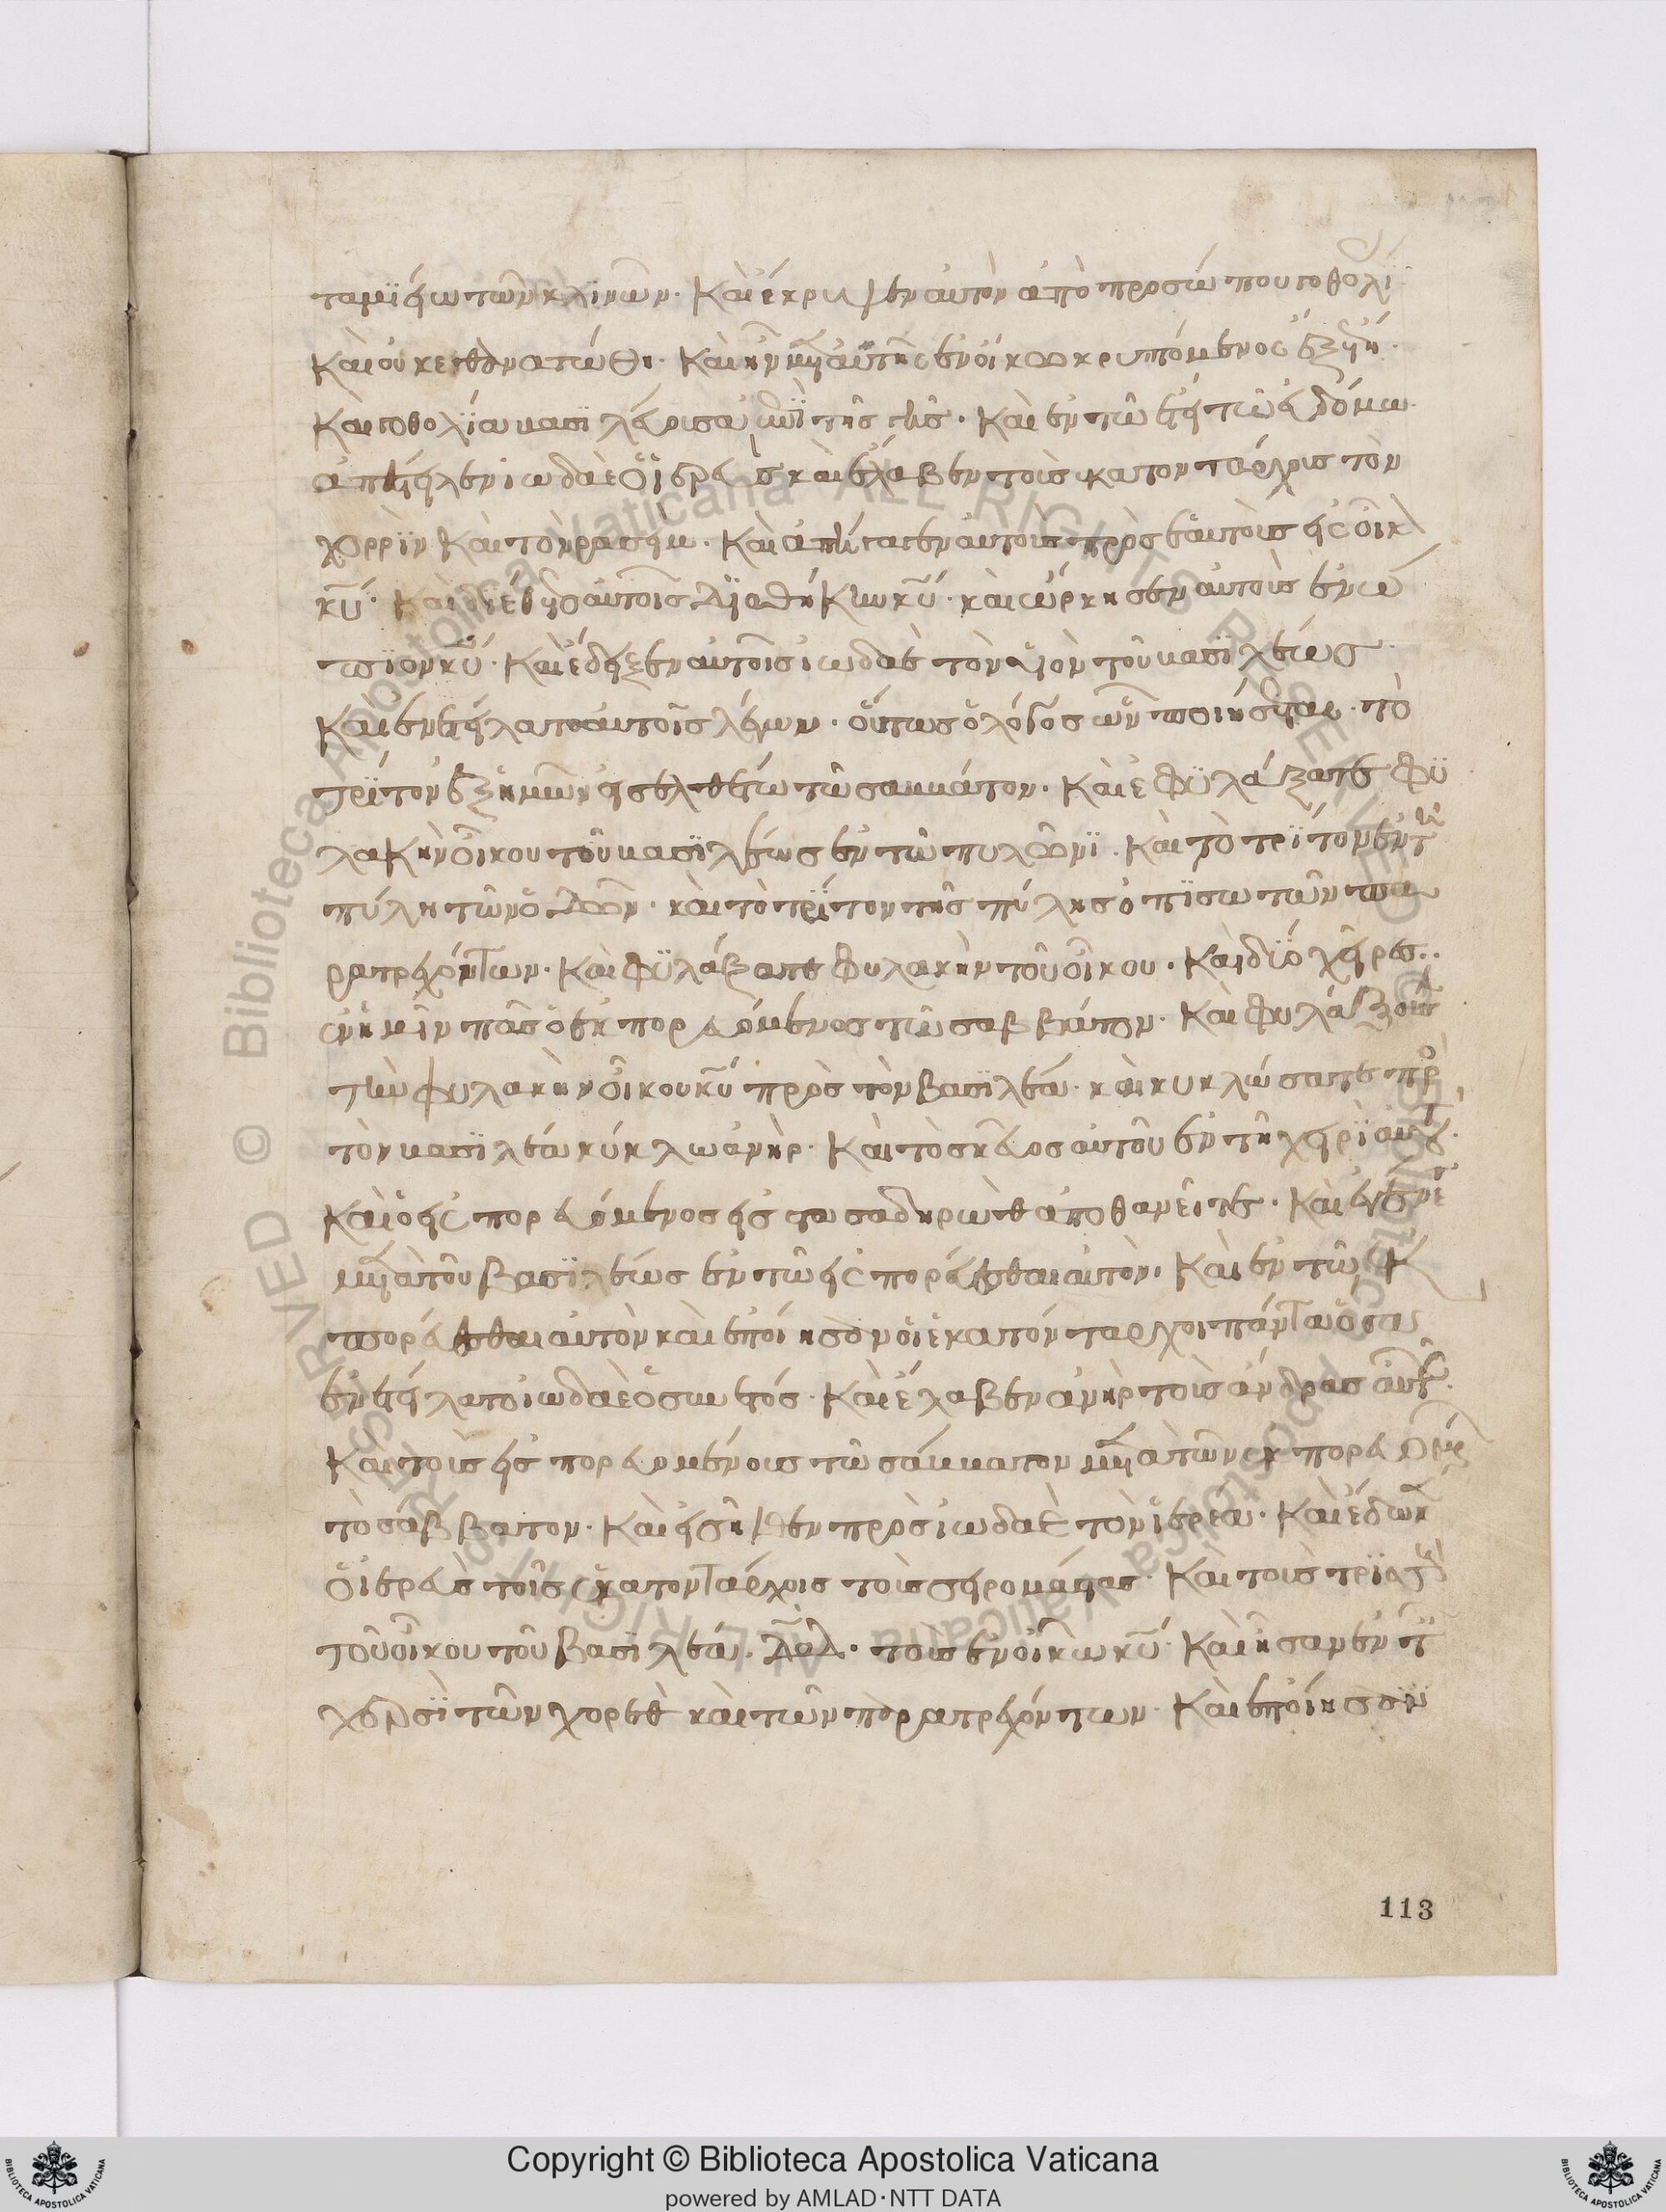 ταμϊείω τῶν κλϊνῶν. Καὶ ἔκρυψεν αὐτὸν ἀπὸ προσώπου γοθολϊ
Καὶ οὐκ ἐθανατώθη. Καὶ ἦν μετ' αὐτῆς ἐν οἴκω κρυπτόμενος ἓξ ἔτη.
Καὶ γοθολϊα βασϊλεύουσα ἐπὶ τῆς γῆς. Καὶ ἐν τῶ ἔτει τῶ ἑβδόμω
ἀπέστειλεν ἰωδαὲ ὁ ἱερεὺς καὶ ἔλαβεν τοὺς ἑκατοντάρχους τὸν
χορρὶν Καὶ τὸν ρασειμ. Καὶ ἀπήγαγεν αὐτοὺς πρὸς ἑαυτοὺς εἰς οἶκ
κυ. Καὶ διέθετο αὐτοῖς διαθήκην κυ. καὶ ὥρκησεν αὐτοὺς ἐνώ
πϊον κυ. Καὶ ἔδειξεν αὐτοῖς ἰωδαὲ τὸν υἱὸν τοῦ βασϊλέως
Καὶ ἐνετείλατο αὐτοῖς λέγων. οὗτος ὁ λόγος ὃν ποιήσεται. τὸ
τρίτον ἐξ ἡμῶν εἰσελθέτω τῶ σάββατον. Καὶ ἐφϋλάξατε φϋ
λακὴν οἴκου τοῦ βασϊλέως ἐν τῶ πυλῶνϊ. Καὶ τὸ τρϊτον ἐν τῆ
πύλη τῶν ὁδῶν. καὶ τὸ τρίτον τῆς πύλης ὀπϊσω τῶν πα
ρατρεχόντων. Καὶ φϋλάξατε φυλακὴν τοῦ οἴκου. Καὶ δϊο χεῖρες..
ἐν ἡμῖν πᾶς ὁ ἐκπορευόμενος τῶ σάββατον. Καὶ φυλάξουσι
τὴν φυλακὴν οἴκου κυ πρὸς τὸν βασϊλέα. καὶ κυκλώσατε πρὸ
τὸν βασϊλέα κύκλω ἀνὴρ. Καὶ τὸ σκεῦος αὐτοῦ ἐν τῆ χειρὶ αὐτοῦ.
Καὶ ὁ εἰσπορευόμενος εἰς τὰ σαδηρὼθ ἀποθανεῖται. Καὶ ἐγένετ
μετὰ τοῦ βασϊλέως ἐν τῶ εἰσπορεύεσθαι αὐτὸν. Καὶ ἐν τῶ ἐκ
πορεύεσθαι αὐτὸν καὶ ἐποίησαν οἱ ἑκατόνταρχοι πάντα ὅσα
ἐνετείλατο ἰωδαὲ ὁ σϋνετός. Καὶ ἔλαβεν ἀνὴρ τοὺς ἄνδρας αὐτοῦ.
Καὶ τοὺς εἰσπορευομένους τῶ σάββατον μετὰ τῶν ἐκπορευομέ
τὸ σάββατον. Καὶ εἰσῆλθεν πρὸς ἰωδαὲ τὸν ἱερέα. Καὶ ἔδωκεν
ὁ ἱερεὺς τοῖς ἑκατοντάρχοις τοὺς σειρομάστας. Καὶ τοὺς τρϊσσοὺς
τοῦ οἴκου τοῦ βασϊλέα. δαδ. τοὺς ἐν οἴκω κυ. Καὶ ἦσαν ἐν τ
χερσϊ τῶν χορεθ καὶ τῶν παρατρεχόντων. Καὶ ἐποίησαν
113
Copyright © Biblioteca Apostolica Vaticana
powered by AMLAD·NTT DATA